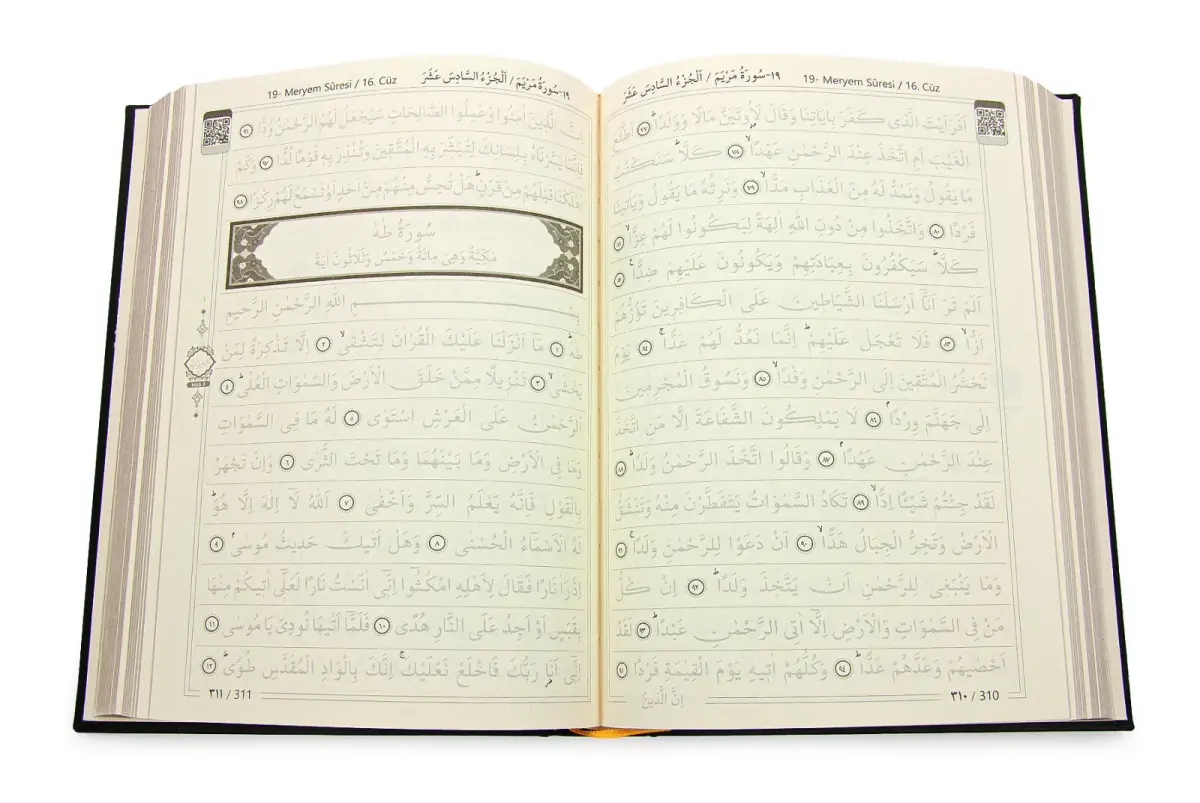 ١٩-سُورَةُ مَرْيَمَ / اَلْجُزْءُ السَّادِسَ عَشَرَ 19- Meryem Sûresi / 16. Cüz
اَفَرَاَيْتَ الَّذٖى كَفَرَ بِاٰيَاتِنَا وَقَالَ لَاُوتَيَنَّ مَالًا وَوَلَدًاؕ ٧٧ اَطَّلَعَ
الْغَيْبَ اَمِ اتَّخَذَ عِنْدَ الرَّحْمٰنِ عَهْدًاۙ ٧٨ كَلَّاؕ سَنَكْتُبُ
مَا يَقُولُ وَنَمُدُّ لَهُ مِنَ الْعَذَابِ مَدًّاۙ ٧٩ وَنَرِثُهُ مَا يَقُولُ وَيَاْتٖينَا
فَرْدًا ٨٠ وَاتَّخَذُوا مِنْ دُونِ اللّٰهِ اٰلِهَةً لِيَكُونُوا لَهُمْ عِزًّاۙ ٨١
كَلَّاؕ سَيَكْفُرُونَ بِعِبَادَتِهِمْ وَيَكُونُونَ عَلَيْهِمْ ضِدًّاࣖ ٨٢
اَلَمْ تَرَ اَنَّٓا اَرْسَلْنَا الشَّيَاطٖينَ عَلَى الْكَافِرٖينَ تَؤُزُّهُمْ
اَزًّاۙ ٨٣ فَلَا تَعْجَلْ عَلَيْهِمْؕ اِنَّمَا نَعُدُّ لَهُمْ عَدًّاۚ ٨٤ يَوْمَ
نَحْشُرُ الْمُتَّقٖينَ اِلَى الرَّحْمٰنِ وَفْدًاۙ ٨٥ وَنَسُوقُ الْمُجْرِمٖينَ
اِلٰى جَهَنَّمَ وِرْدًاۘ ٨٦ لَا يَمْلِكُونَ الشَّفَاعَةَ اِلَّا مَنِ اتَّخَذَ
عِنْدَ الرَّحْمٰنِ عَهْدًاۘ ٨٧ وَقَالُوا اتَّخَذَ الرَّحْمٰنُ وَلَدًاؕ ٨٨
لَقَدْ جِئْتُمْ شَيْـًٔا اِدًّاۙ ٨٩ تَكَادُ السَّمٰوَاتُ يَتَفَطَّرْنَ مِنْهُ وَتَنْشَقُّ
الْاَرْضُ وَتَخِرُّ الْجِبَالُ هَدًّاۙ ٩٠ اَنْ دَعَوْا لِلرَّحْمٰنِ وَلَدًاۚ ٩١
وَمَا يَنْبَغٖى لِلرَّحْمٰنِ اَنْ يَتَّخِذَ وَلَدًاؕ ٩٢ اِنْ كُلُّ
مَنْ فِى السَّمٰوَاتِ وَالْاَرْضِ اِلَّٓا اٰتِى الرَّحْمٰنِ عَبْدًاؕ ٩٣ لَقَدْ
اَحْصٰيهُمْ وَعَدَّهُمْ عَدًّاؕ ٩٤ وَكُلُّهُمْ اٰتٖيهِ يَوْمَ الْقِيٰمَةِ فَرْدًا ٩٥
اِنَّ الَّذٖينَ
٣١٠ / 310
19- Meryem Sûresi / 16. Cüz ١٩-سُورَةُ مَرْيَمَ / اَلْجُزْءُ السَّادِسَ عَشَرَ
اِنَّ الَّذٖينَ اٰمَنُوا وَعَمِلُوا الصَّالِحَاتِ سَيَجْعَلُ لَهُمُ الرَّحْمٰنُ وُدًّا ٩٦
فَاِنَّمَا يَسَّرْنَاهُ بِلِسَانِكَ لِتُبَشِّرَ بِهِ الْمُتَّقٖينَ وَتُنْذِرَ بِهٖ قَوْمًا لُدًّا ٩٧ وَكَمْ
اَهْلَكْنَا قَبْلَهُمْ مِنْ قَرْنٍؕ هَلْ تُحِسُّ مِنْهُمْ مِنْ اَحَدٍ اَوْ تَسْمَعُ لَهُمْ رِكْزًا ٩٨
سُورَةُ طٰهٰ
مَكِّيَّةٌ وَهِىَ مِائَةٌ وَخَمْسٌ وَثَلَاثُونَ اٰيَةً
بِسْمِ اللّٰهِ الرَّحْمٰنِ الرَّحٖيمِ
طٰهٰؕ ١ مَٓا اَنْزَلْنَا عَلَيْكَ الْقُرْاٰنَ لِتَشْقٰىۙ ٢ اِلَّا تَذْكِرَةً لِمَنْ
يَخْشٰىۙ ٣ تَنْزٖيلًا مِمَّنْ خَلَقَ الْاَرْضَ وَالسَّمٰوَاتِ الْعُلٰىؕ ٤
اَلرَّحْمٰنُ عَلَى الْعَرْشِ اسْتَوٰى ٥ لَهُ مَا فِى السَّمٰوَاتِ
وَمَا فِى الْاَرْضِ وَمَا بَيْنَهُمَا وَمَا تَحْتَ الثَّرٰى ٦ وَاِنْ تَجْهَرْ
بِالْقَوْلِ فَاِنَّهُ يَعْلَمُ السِّرَّ وَاَخْفٰى ٧ اَللّٰهُ لَٓا اِلٰهَ اِلَّا هُوَؕ
لَهُ الْاَسْمَٓاءُ الْحُسْنٰى ٨ وَهَلْ اَتٰيكَ حَدٖيثُ مُوسٰىۘ ٩
اِذْ رَاٰ نَارًا فَقَالَ لِاَهْلِهِ امْكُثُٓوا اِنّٖٓى اٰنَسْتُ نَارًا لَعَلّٖٓى اٰتٖيكُمْ مِنْهَا
بِقَبَسٍ اَوْ اَجِدُ عَلَى النَّارِ هُدًى ١٠ فَلَمَّٓا اَتٰيهَا نُودِىَ يَا مُوسٰىؕ ١١
اِنّٖٓى اَنَا رَبُّكَ فَاخْلَعْ نَعْلَيْكَۚ اِنَّكَ بِالْوَادِ الْمُقَدَّسِ طُوًىؕ ١٢
٣١١ / 311